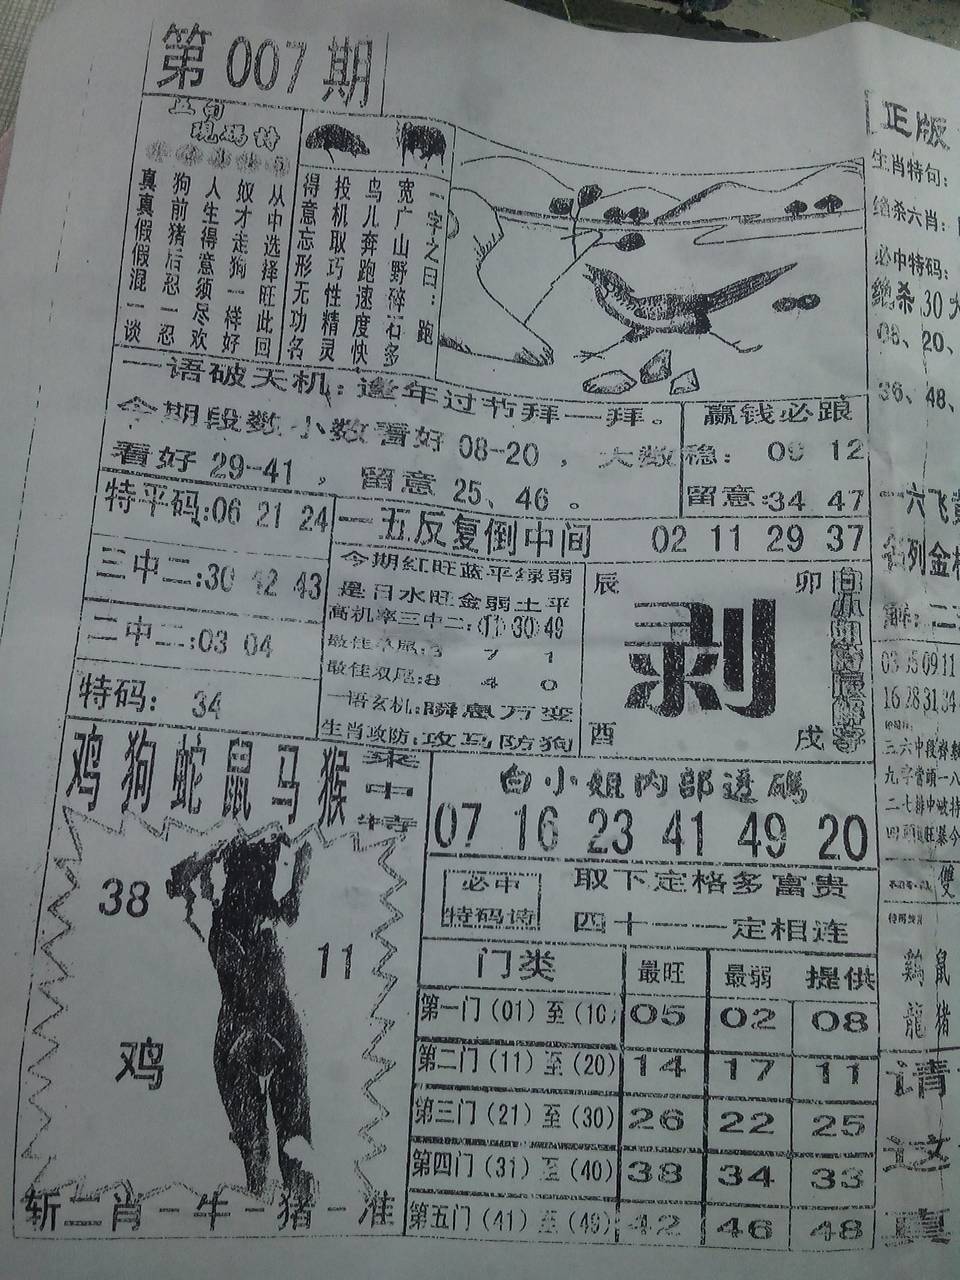 第007期
五句
现码诗
从中选择旺此回
奴才走狗一样好
人生得意须尽欢
狗前猪后忍一忍
真真假假混一谈
一字之曰：跑
宽广山野碎石多
鸟儿奔跑速度快
投机取巧性精灵
得意忘形无功名
一语破天机：逢年过节拜一拜。
今期段数小数看好08-20，大数
看好29-41，留意25、46。
赢钱必跟
稳：09 12
留意:34 47
特平码:06 21 24
三中二:30 42 43
二中二:03 04
特码：34
一五反复倒中间 02 11 29 37
今期红旺蓝平绿弱
是日水旺金弱土平
高机率三中二:(11)(30)(49)
最佳单尾:3 7 1
最佳双尾:8 4 0
一语玄机:瞬息万变
生肖攻防:攻马防狗
辰 卯
剥
酉 戌
鸡狗蛇鼠马猴
来中特
38
11
鸡
斩二肖一牛一猪一准
白小姐内部送码
07 16 23 41 49 20
必中
特码诗
取下定格多富贵
四十一一定相连
门类 最旺 最弱 提供
第一门(01)至(10) 05 02 08
第二门(11)至(20) 14 17 11
第三门(21)至(30) 26 22 25
第四门(31)至(40) 38 34 33
第五门(41)至(49) 42 46 48
正版
生肖特句：
绝杀六肖：
必中特码：
绝杀30
08、20、
36、48、
一六飞
列金
03 05 09 11
16 28 31 34
三六中段
九字當頭一八
二七排中破特
雙
鷄鼠
龍猪
请
这
真